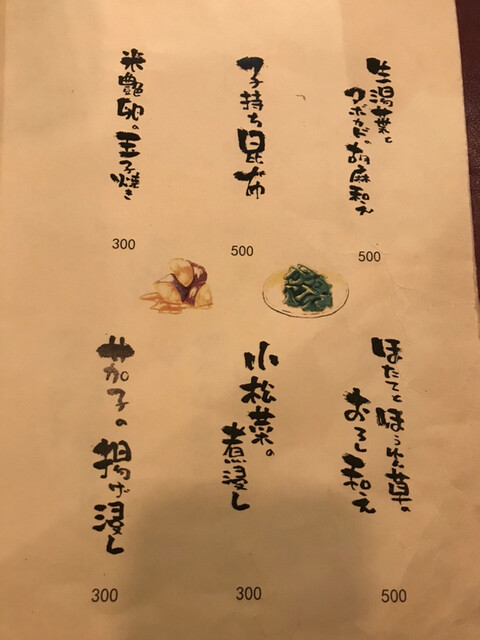 生湯葉と
アボカドの胡麻和え
500
子持ち昆布
500
米艶卵の玉子焼き
300
ほたてとほうれん草の
おろし和え
500
小松菜の
煮浸し
300
茄子の揚げ浸し
300